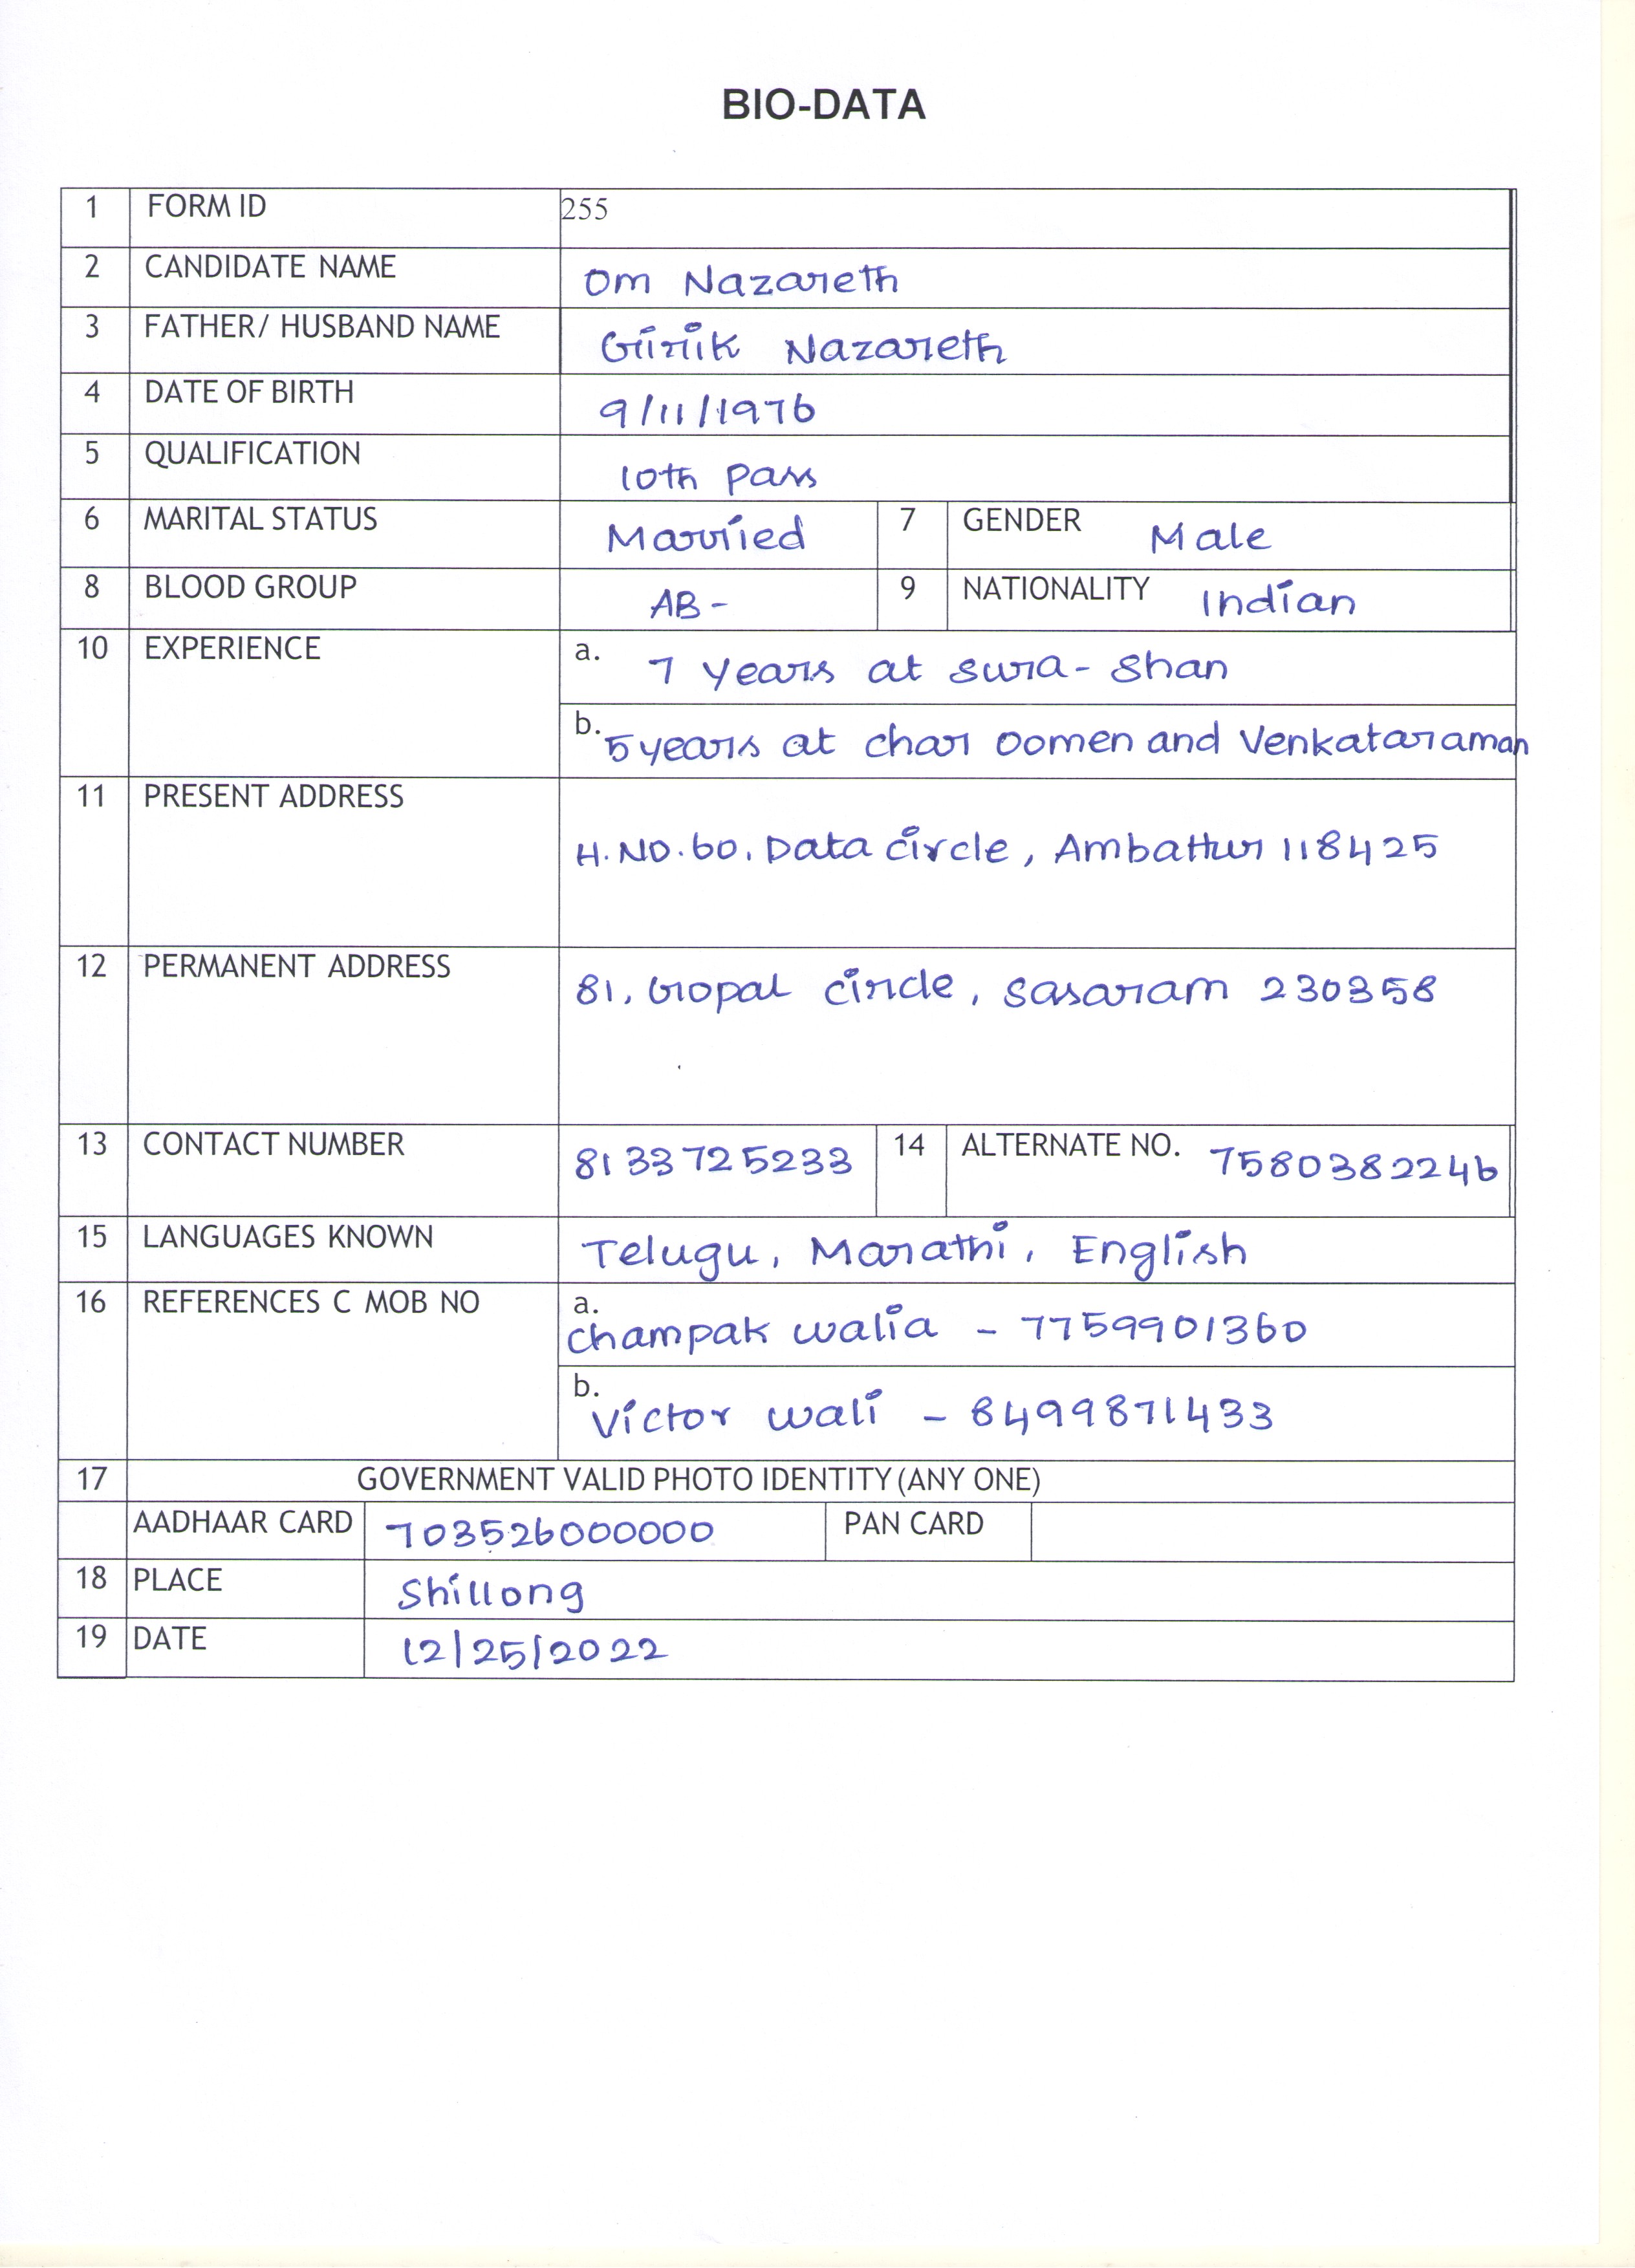 BIO-DATA
1 FORM ID 255
2 CANDIDATE NAME Om Nazareth
3 FATHER/ HUSBAND NAME Girik Nazareth
4 DATE OF BIRTH 9/11/1976
5 QUALIFICATION 10th Pass
6 MARITAL STATUS Married 7 GENDER Male
8 BLOOD GROUP AB- 9 NATIONALITY Indian
10 EXPERIENCE a. 7 years at Sura-Shan
b. 5 years at Char Oomen and Venkataraman
11 PRESENT ADDRESS
H.NO.60, Data Circle, Ambattur 118425
12 PERMANENT ADDRESS 81, Gopal Circle, Sasaram 230358
13 CONTACT NUMBER 8133725233 14 ALTERNATE NO. 7580382246
15 LANGUAGES KNOWN Telugu, Marathi, English
16 REFERENCES C MOB NO a. Champak Walia - 7759901360
b. Victor Wali - 8499871433
17 GOVERNMENT VALID PHOTO IDENTITY (ANY ONE)
AADHAAR CARD 703526000000 PAN CARD
18 PLACE Shillong
19 DATE 12/25/2022